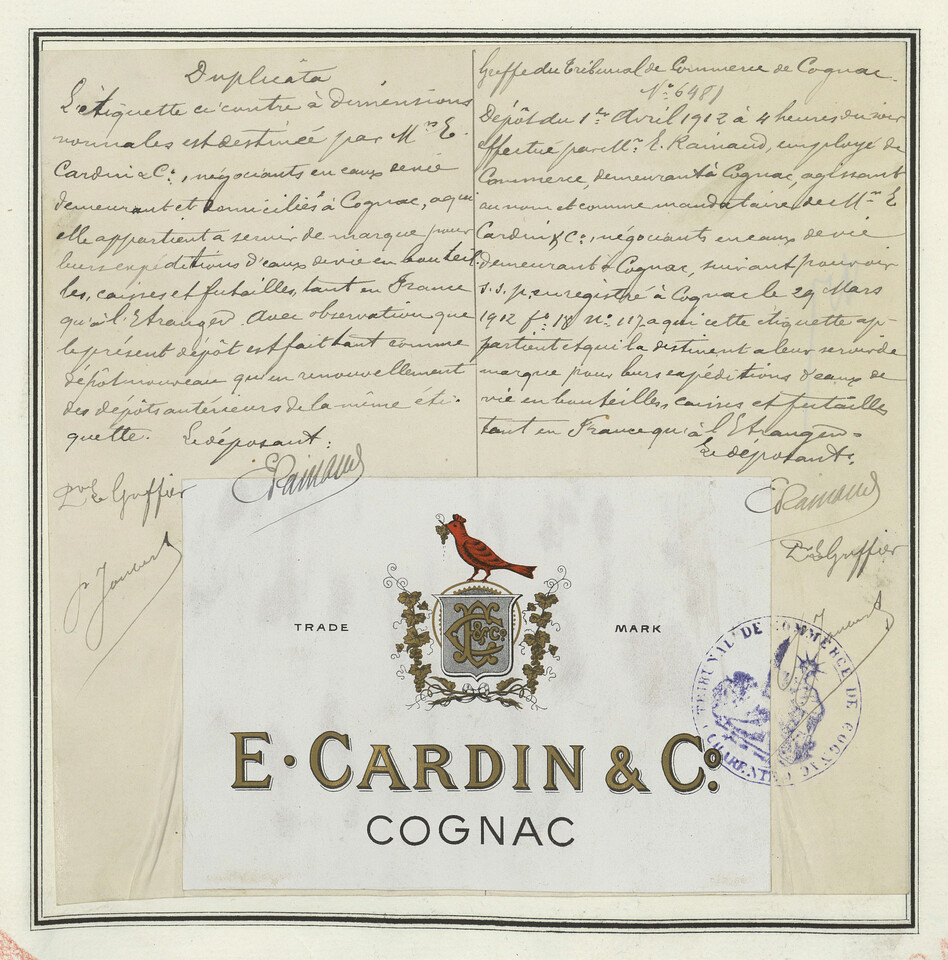 Duplicata
L'étiquette ci contre à dimensions
normales est destinée par Mrs E.
Cardin & Cie, négociants en eaux de vie
demeurant et domiciliés à Cognac, à qui
elle appartient a servir de marque pour
leurs expéditions d'eaux de vie en bouteil-
les, caisses et futailles, tant en France
qu'à l'Etranger. Avec observation que
le présent dépôt est fait tant comme
dépôt nouveau qu'en renouvellement
des dépôts antérieurs de la même éti-
quette. Le déposant:
ERainaud
Pr le Greffier
Greffe du Tribunal de Commerce de Cognac.
No 6481
Dépôt du 1er Avril 1912 à 4 heures du soir
effectué par Mr. E. Rainaud, employé de
Commerce, demeurant à Cognac, agissant
au nom et comme mandataire de Mrs E
Cardin & Cie, négociants en eaux de vie
demeurant à Cognac, suivant pouvoir
s.s.p. enregistré à Cognac le 29 Mars
1912 fo 18 No 117, a qui cette étiquette ap-
partient et qui la destinent a leur servir de
marque pour leurs expéditions d'eaux de
vie en bouteilles, caisses et futailles
tant en France qu'à l'Etranger.
Le déposant:
ERainaud
Pr le Greffier
TRADE MARK
E & Co
E. CARDIN & Co.
COGNAC
TRIBUNAL DE COMMERCE DE COGNAC
(CHARENTE)